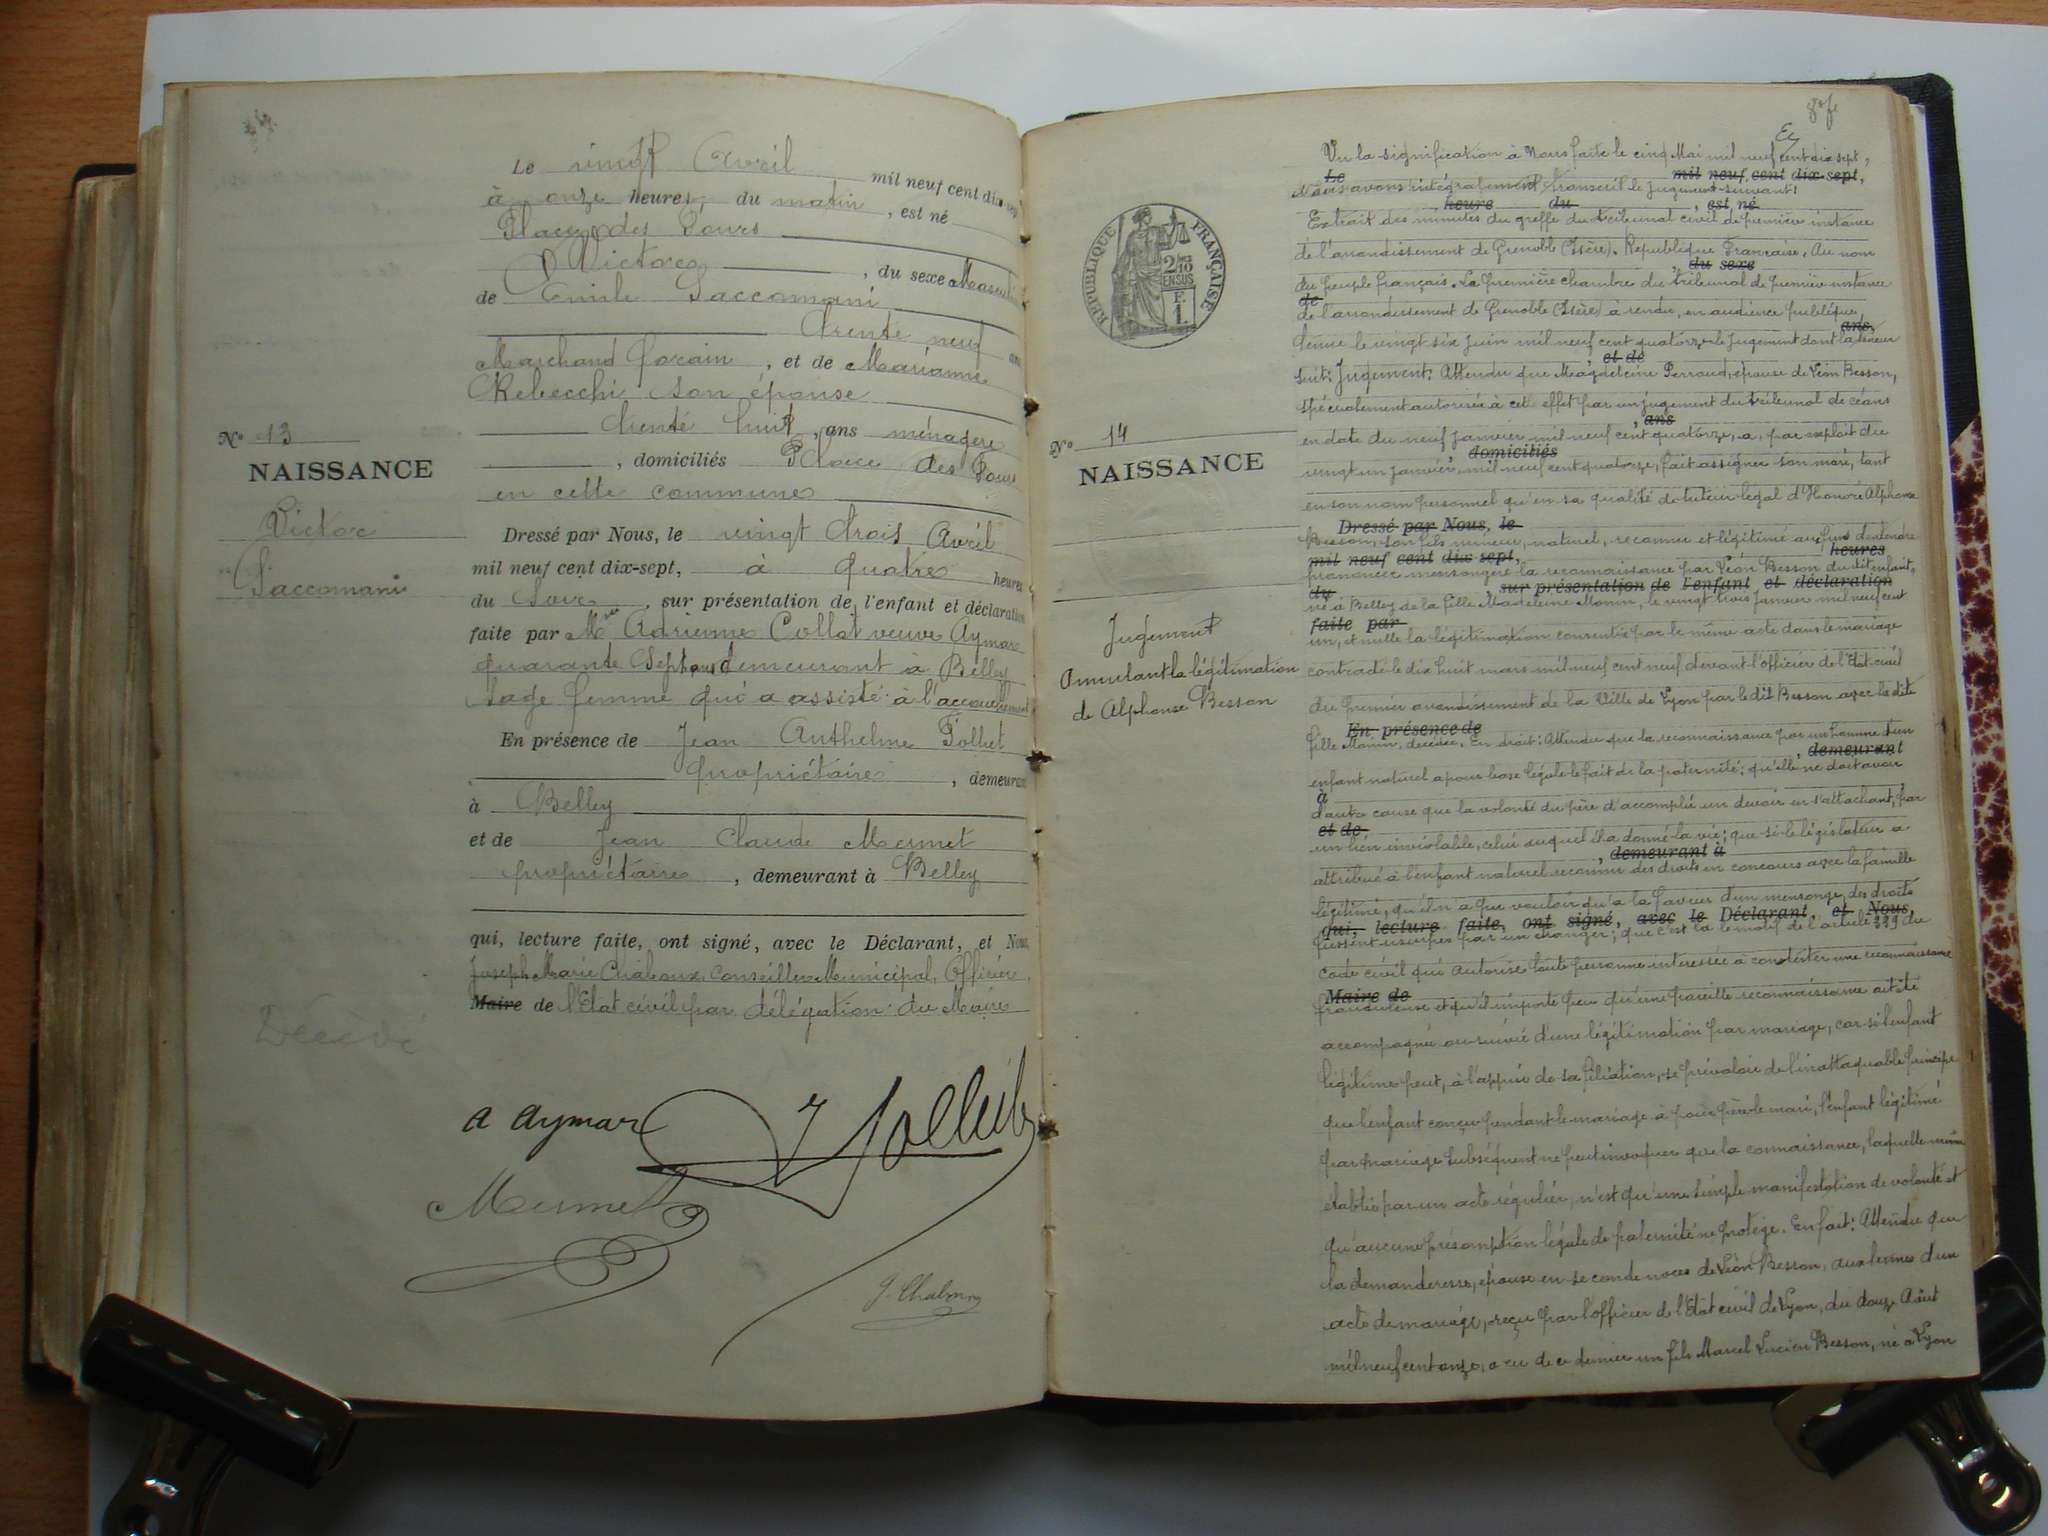 Le vingt Avril mil neuf cent dix-sept
à onze heures, du matin, est né
Place des Fours
Victor, du sexe Masculin
de Emile Saccomani
trente neuf ans
Marchand forain, et de Marianne
Rebecchi son épouse
trente huit, ans ménagère
, domiciliés Place des Fours
en cette commune
N° 13
NAISSANCE
Victor
Saccomani
Dressé par Nous, le vingt trois Avril
mil neuf cent dix-sept, à quatre heures
du Soir, sur présentation de l'enfant et déclaration
faite par Mme Adrienne Collot veuve Aymar
quarante Sept ans demeurant à Belley
Sage femme qui a assisté à l'accouchement
En présence de Jean Anthelme Tollet
propriétaire, demeurant
à Belley
et de Jean Claude Mermet
propriétaire, demeurant à Belley
qui, lecture faite, ont signé, avec le Déclarant, et Nous
Joseph Marie Chaboux, Conseiller Municipal, Officier
Maire de l'Etat civil par délégation du Maire
Décédé
A Aymar
Mermet
J. Chaboux
RÉPUBLIQUE FRANÇAISE
2/10
EN SUS
F.
1.
N° 14
NAISSANCE
Jugement
Annulant la légitimation
de Alphonse Besson
Vu la signification à Nous faite le cinq Mai mil neuf cent dix sept,
Le mil neuf cent dix-sept,
Nous avons intégralement transcrit le jugement suivant:
heure du, est né
Extrait des minutes du greffe du tribunal civil de première instance
de l'arrondissement de Grenoble (Isère). République Française. Au nom
du sexe
du peuple français. La première chambre du tribunal de première instance
de
de l'arrondissement de Grenoble (Isère) a rendu, en audience publique,
ans,
tenue le vingt six juin mil neuf cent quatorze le jugement dont la teneur
, et de
suit: Jugement: Attendu que Magdeleine Perraud, épouse de Léon Besson,
spécialement autorisée à cet effet par un jugement du tribunal de céans
, ans
en date du neuf janvier mil neuf cent quatorze, a, par exploit du
, domiciliés
vingt un janvier, mil neuf cent quatorze, fait assigner son mari, tant
en son nom personnel qu'en sa qualité de tuteur légal d'Honoré Alphonse
Dressé par Nous, le
Besson, son fils mineur, naturel, reconnu et légitimé aux fins d'entendre
mil neuf cent dix sept, heures
prononcer mensongère la reconnaissance par Léon Besson du dit enfant,
du, sur présentation de l'enfant et déclaration
né à Belley de la fille Madeleine Monin, le vingt trois janvier mil neuf cent
faite par
un, et nulle la légitimation consentie par le même acte dans le mariage
contracté le dix huit mars mil neuf cent neuf devant l'officier de l'Etat-civil
du premier arrondissement de la Ville de Lyon par le dit Besson avec la dite
En présence de
fille Monin, décédée. En droit: Attendu que la reconnaissance par un homme d'un
, demeurant
enfant naturel a pour base légale le fait de la paternité; qu'elle ne doit avoir
à
d'autre cause que la volonté du père d'accomplir un devoir en s'attachant, par
et de
un lien inviolable, celui auquel il a donné la vie; que si le législateur a
, demeurant à
attribué à l'enfant naturel reconnu des droits en concours avec la famille
légitime, qu'il n'a pu vouloir qu'à la faveur d'un mensonge, des droits
qui, lecture faite, ont signé, avec le Déclarant, et Nous
fussent usurpés par un étranger; que c'est là le motif de l'article 339 du
code civil qui autorise toute personne intéressée à contester une reconnaissance
Maire de
frauduleuse et qu'il importe peu qu'une pareille reconnaissance ait été
accompagnée ou suivie d'une légitimation par mariage, car si l'enfant
légitime peut, à l'appui de sa filiation, se prévaloir de l'inattaquable principe
que l'enfant conçu pendant le mariage a pour père le mari, l'enfant légitimé
par mariage subséquent ne peut invoquer que la connaissance, laquelle même
établie par un acte régulier, n'est qu'une simple manifestation de volonté et
qu'aucune présomption légale de paternité ne protège. En fait: Attendu que
la demanderesse, épouse en seconde noces de Léon Besson, aux termes d'un
acte de mariage, reçu par l'officier de l'Etat civil de Lyon, du douze Août
mil neuf cent onze, a eu de ce dernier un fils Marcel Lucien Besson, né à Lyon